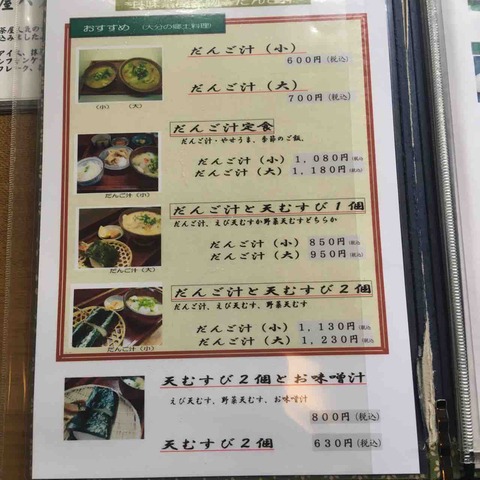 おすすめ (大分の郷土料理)
だんご汁(小)
600円(税込)
だんご汁(大)
700円(税込)
(小) (大)
だんご汁定食
だんご汁・やせうま、季節のご飯、
だんご汁(小) 1,080円(税込
だんご汁(大) 1,180円(税込
だんご汁(小)
だんご汁と天むすび1個
だんご汁、えび天むすか野菜天むすどちらか
だんご汁(小) 850円(税込
だんご汁(大) 950円(税込
だんご汁(大)
だんご汁と天むすび2個
だんご汁、えび天むす、野菜天むす
だんご汁(小) 1,130円(税込
だんご汁(大) 1,230円(税込
だんご汁(小)
天むすび2個とお味噌汁
えび天むす、野菜天むす、お味噌汁
800円(税込)
天むすび2個 630円(税込)